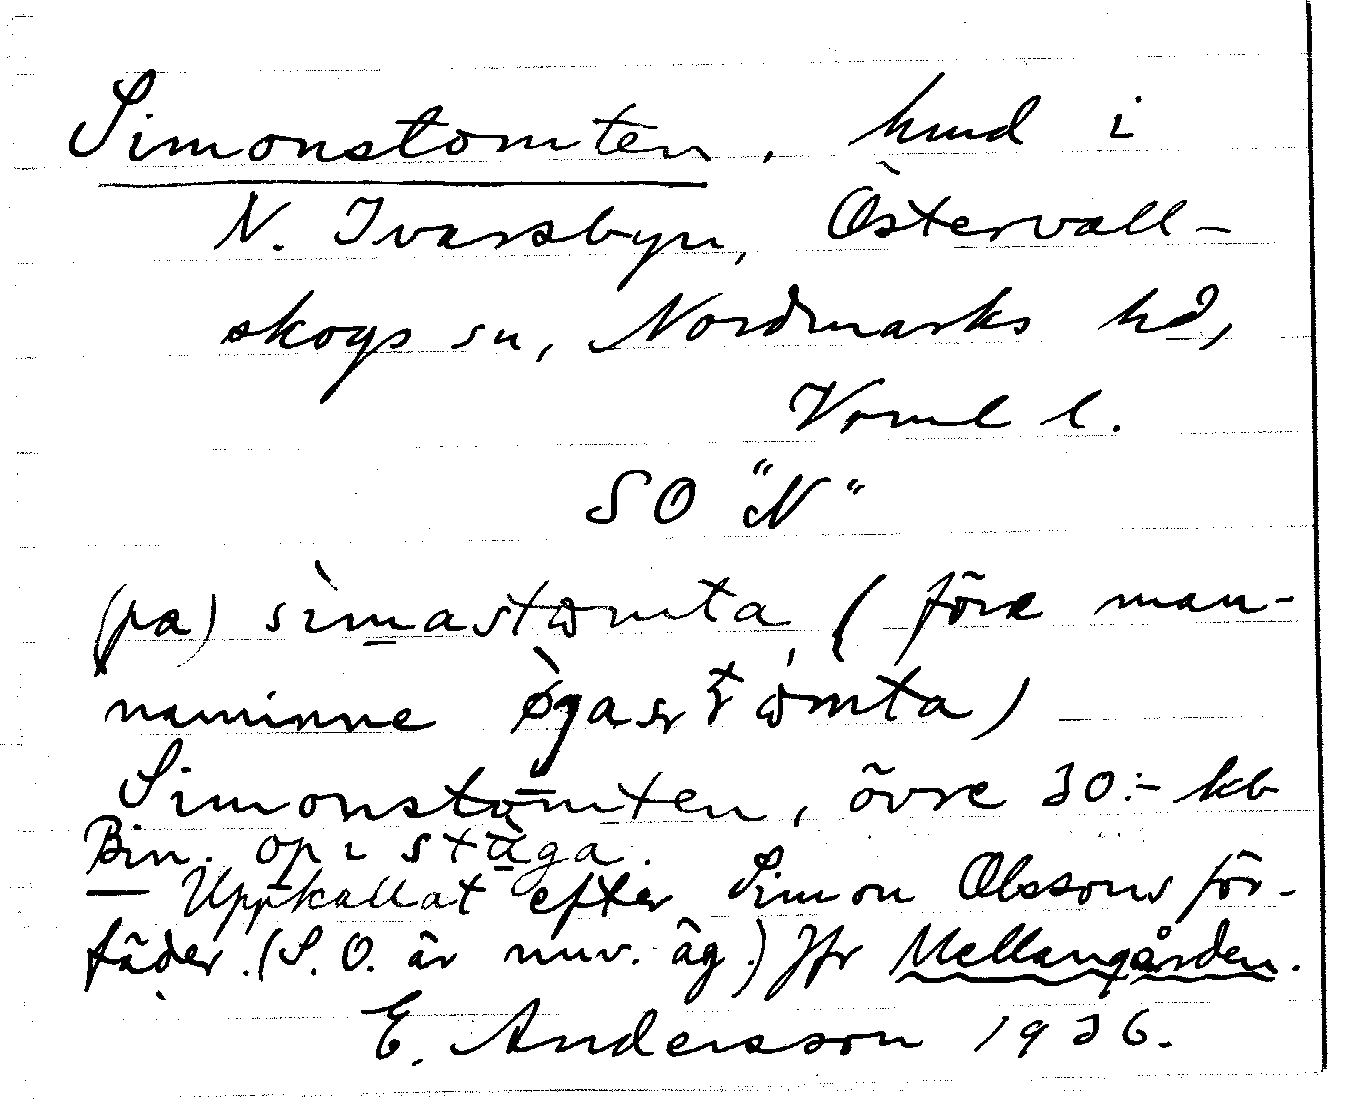 Simonstomten, hmd i
N. Ivarsbyn, Östervall-
skogs sn, Nordmarks hd,
Vrml l.
SO "N"
(pa) sìmastɷmta, (före man-
naminne øgasr
Simonstomten, övre 30:- kb
Bin. op i stäga.
— Uppkallat efter Simon Olssons för-
fäder. (S.O. är nuv. äg.) Jfr Mellangården.
E. Andersson 1936.